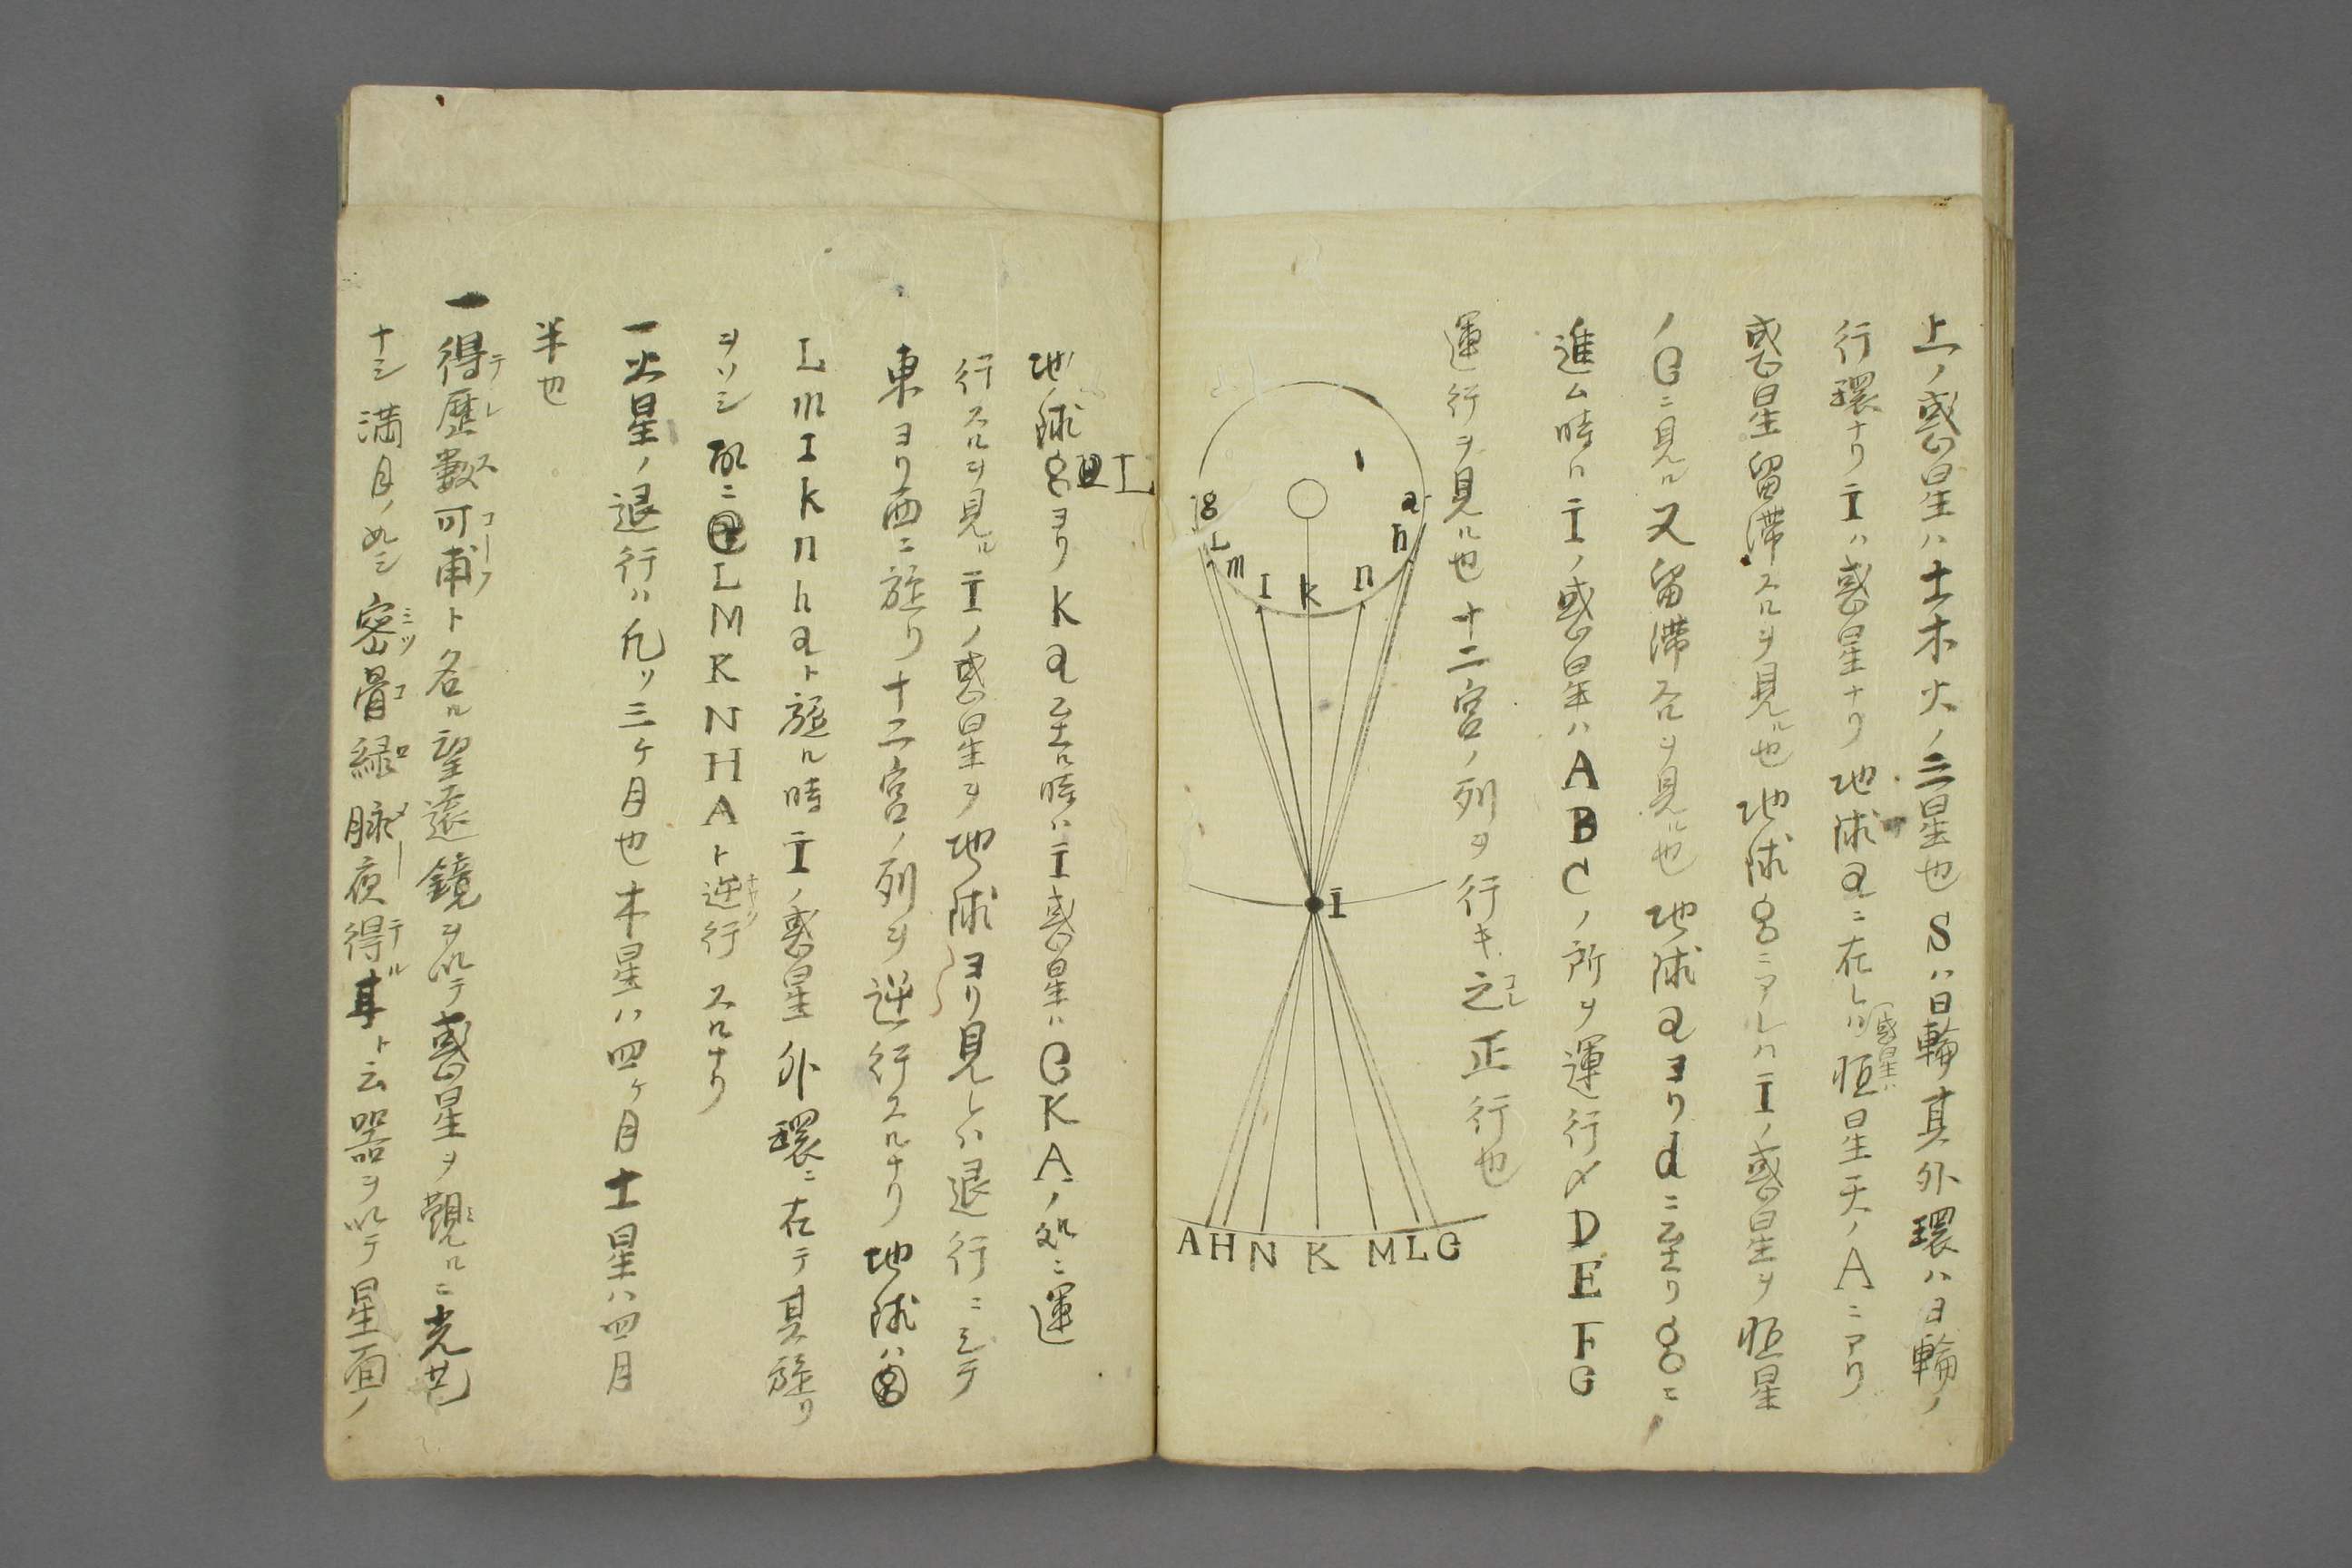 上ノ惑星ハ土木火ノ三星也Sハ日輪其外環ハ日輪ノ
行環ナリIハ惑星ナリ地球aニ在レハ恒星天ノAニアリ
惑星ハ
惑星留滞スルヲ見ル也地球gニアレハIノ惑星ヲ恒星
ノGニ見ル又留滞スルヲ見ル也地球aヨリdニ至リgニ
進ム時ハIノ惑星ハABCノ所ヲ運行〆DEFG
運行ヲ見ル也十二宮ノ列ヲ行キ之正行也
コレ
g a
L h
m I k n
I
A H N K M L G
地球gヨリKa至ル時ハI惑星ハGKAノ処ニ運
行スルヲ見ルIノ惑星ヲ地球ヨリ見レハ退行ニシテ
東ヨリ西ニ旋リ十二宮ノ列ヲ逆行スルナリ地球ハg
LmIknhaト旋ル時Iノ惑星外環ニ在テ其旋リ
ヲソシ故ニLMKNHAト逆行スルナリ
一火星ノ退行ハ凡ソ三ケ月也木星ハ四ケ月土星ハ四月
半也
一得歴數可甫ト名ル望遠鏡ヲ以テ惑星ヲ觀ルニ光芒
テレスコーフ
ナシ満月ノ如シ密骨緑脉夜得耳ト云器ヲ以テ星面ノ
ミツコロメーテル